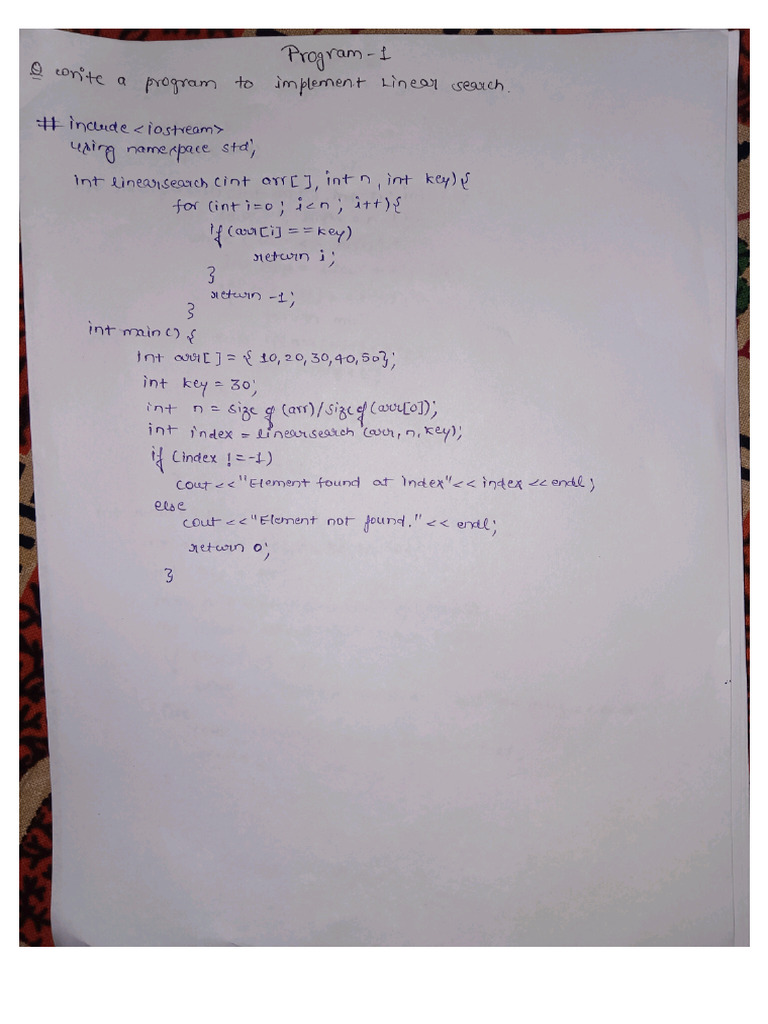 Program-1
Q write a program to implement Linear search.
# include <iostream>
using namespace std;
int linearsearch (int arr[], int n, int key){
for (int i=0; i<n; i++){
if (arr[i] ==key)
return i;
}
return -1;
}
int main() {
int arr[] = { 10,20,30,40,50};
int key = 30;
int n = size of (arr)/size of (arr[0]);
int index = linearsearch (arr, n, key);
if (index != -1)
cout<<"Element found at index"<< index << endl;
else
cout <<"Element not found." << endl;
return 0;
}